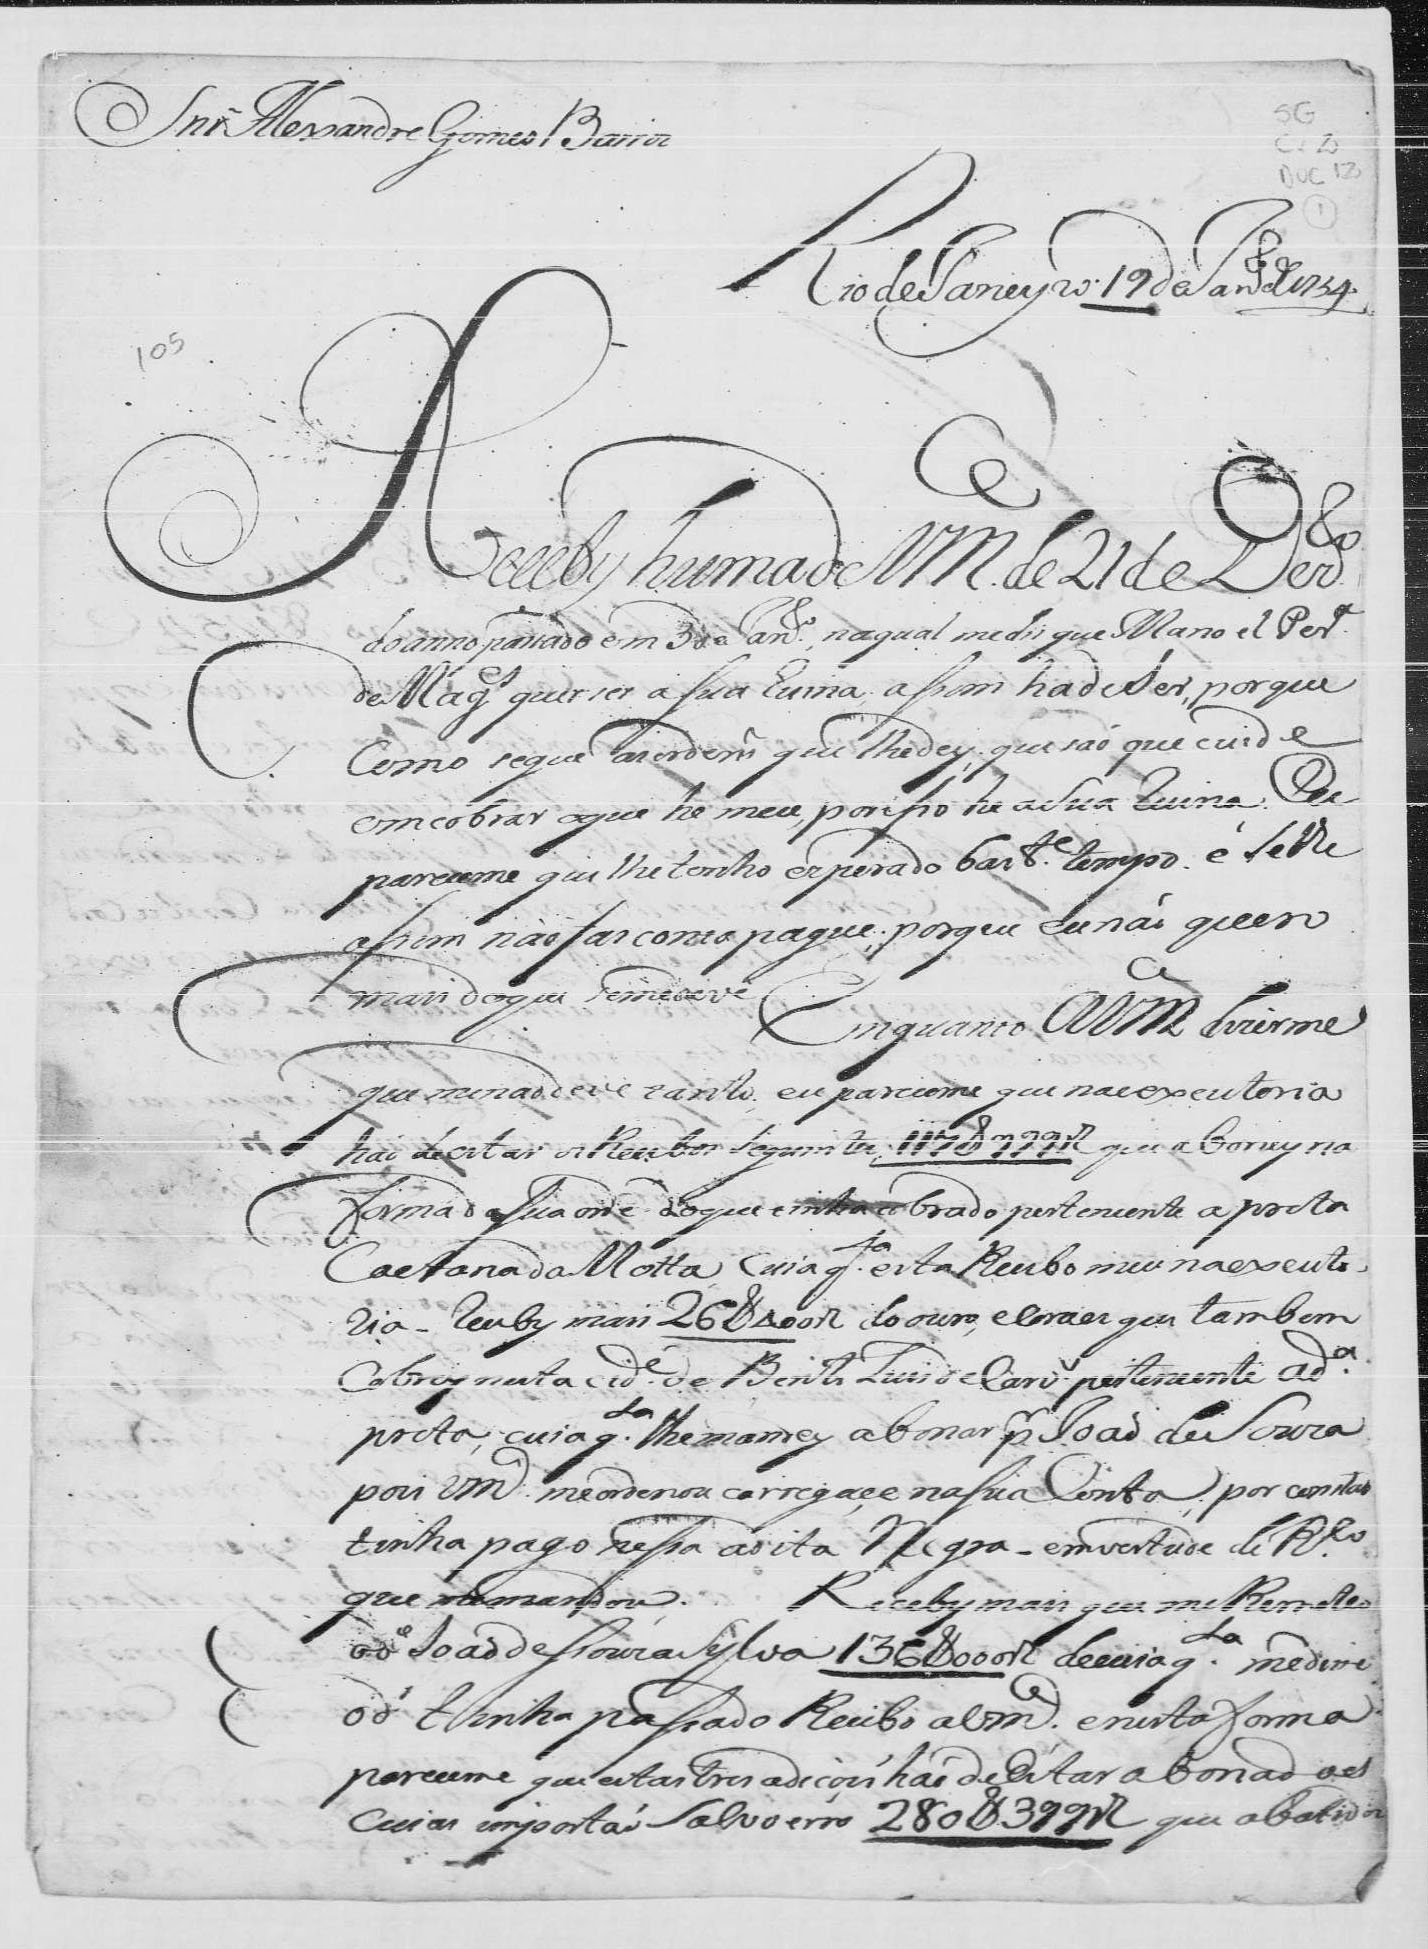 Snr Alexandre Gomes Barros
SG
Cx 2
DOC 12
1
Rio de Janeyro 19 de Janro de 1734
105
Receby huma de VMce de 21 de Dezbro
do anno passado em 3 de Janro, na qual me dis que Manoel Perª
de Mages quer ser a sua Ruina, assim hade ser, porque
Como segue as ordens que lhe dey, que são que cuide
em cobrar oque he meu, por isso he a sua Ruina. Eu
pareceme que lhe tenho esperado bastte tempo. é se lhe
assim não fas conta pague, porque eu não quero
mais doque seme deve Enquanto AVMce dizerme
que me não deve tanto, eu pareceme que na executoria
hão de estar os Recibos seguintes, 117$999R que aboney na
forma da sua ordê doque tinha cobrado pertencente a preta
Caetana da Motta, cuia qta esta Recibo meu na executo-
ria - Receby mais 26$400R do ouro, e que tambem
Cobrey nesta cidê de Bento Luis de Carvº pertencente a dª
preta, cuia qta lhe mandey abonar pr João de Souza
pois VMce me ordenou carregace na sua Conta, por
tinha pago nessa a dita Negra - em vertude de Rbo
que me mandou. Receby mais que me Remeteo
o dº João de Souza Sylva 136$000R de cuia qta me dis
o dº tinha passado Recibo a VMce. e nesta forma
pareceme que estas tres adiçois hão de estar abonadas
cuias importão salvo erro 280$399R que abatidos